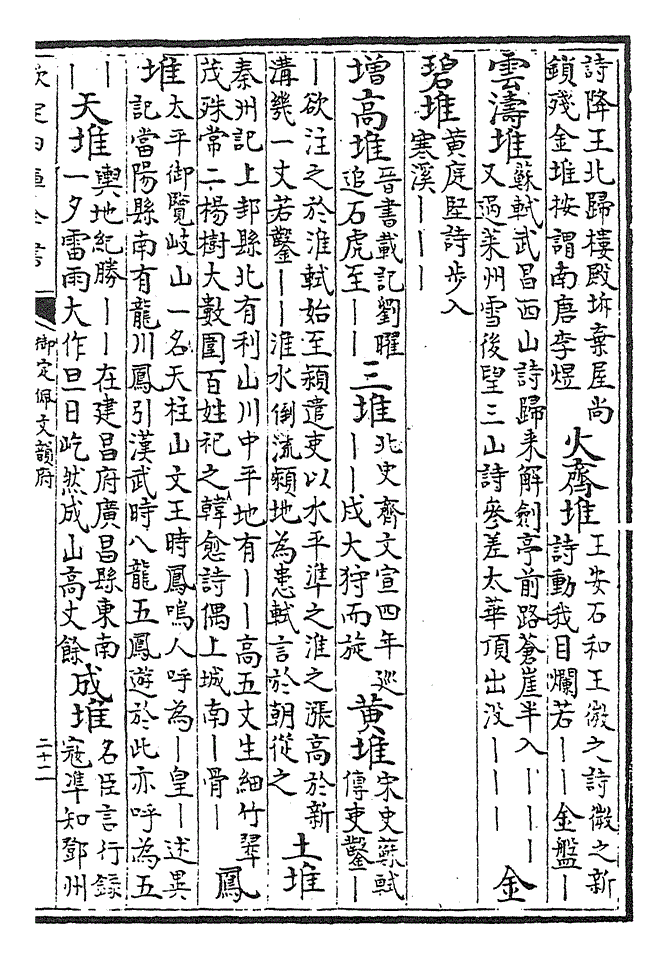 詩降王北歸樓殿坼棄屋尚
鎖殘金堆按謂南唐李煜
火齊堆
王安石和王微之詩微之新
詩動我目爛若丨丨金盤丨
雲濤堆
蘇軾武昌西山詩歸来解劍亭前路蒼崖半入丨丨丨
又過萊州雪後望三山詩參差太華頂出没丨丨丨
金
碧堆
黄庭堅詩步入
寒溪丨丨丨
增高堆
晉書載記劉曜
追石虎至丨丨
三堆
北史齊文宣四年巡
丨丨戍大狩而旋
黄堆
宋史蘇軾
傳吏鑿丨
丨欲注之於淮軾始至潁遣吏以水平凖之淮之漲高於新
溝幾一丈若鑿丨丨淮水倒流潁地為患軾言於朝從之
土堆
秦州記上邽縣北有利山川中平地有丨丨高五丈生細竹翠
茂殊常二楊樹大數圍百姓祀之韓愈詩偶上城南丨骨丨
鳳
堆
太平御覽岐山一名天柱山文王時鳳鳴人呼為丨皇丨述異
記當陽縣南有龍川鳳引漢武時八龍五鳳遊於此亦呼為五
丨丨
天堆
輿地紀勝丨丨在建昌府廣昌縣東南
一夕雷雨大作旦日屹然成山高丈餘
成堆
名臣言行錄
寇凖知鄧州
御定佩文韻府
二十二